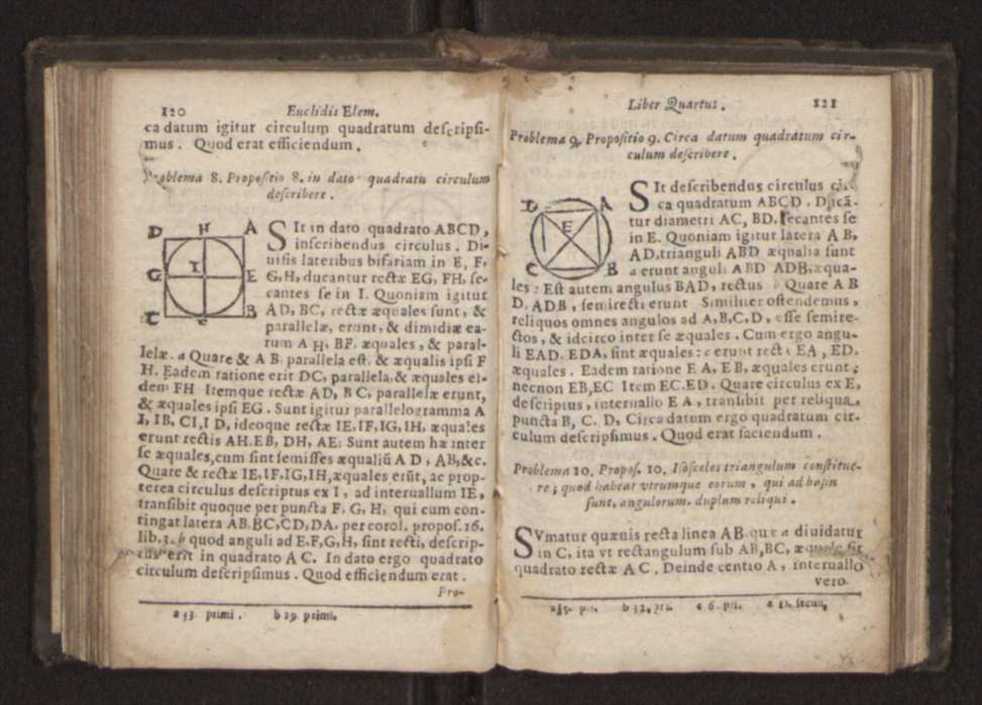 120 Euclidis Elem.
ca datum igitur circulum quadratum descripsi-
mus. Quod erat efficiendum.
Problema 8. Propositio 8. in dato quadrato circulum
describere.
D H A
G I E
C F B
SIt in dato quadrato ABCD,
inscribendus circulus. Di-
uisis lateribus bifariam in E, F,
G, H, ducantur rectæ EG, FH, se-
cantes se in I. Quoniam igitur
AD, BC, rectæ æquales sunt, &
parallelæ, erunt, & dimidiæ ea-
rum A H, BF. æquales, & paral-
lelæ. a Quare & A B. parallela est. & æqualis ipsi F
H. Eadem ratione erit DC, parallela, & æquales ei-
dem FH Itemque rectæ AD, B C, parallelæ erunt,
& æquales ipsi EG. Sunt igitur parallelogramma A
I, IB, CI, I D, ideoque rectæ IE, IF, IG, IH, æquales
erunt rectis AH. EB, DH, AE: Sunt autem hæ inter
se æquales, cum sint semisses æqualiū A D, AB, &c.
Quare & rectæ IE, IF, IG, IH, æquales erūt, ac prop-
terea circulus descriptus ex I, ad interuallum IE,
transibit quoque per puncta F, G, H, qui cum con-
tingat latera AB. BC, CD, DA. per corol. propos. 16.
lib. 3. b quod anguli ad E, F, G, H, sint recti, descrip-
tus erit in quadrato A C. In dato ergo quadrato
circulum descripsimus. Quod efficiendum erat.
Pro-
a 33. primi. b 29. primi.
Liber Quartus. 121
Problema 9. Propositio 9. Circa datum quadratum cir-
culum describere.
D A
E
C B
SIt describendus circulus cir-
ca quadratum ABCD. Dūcā-
tur diametri AC, BD. secantes se
in E. Quoniam igitur latera A B,
AD. trianguli ABD æqualia sunt
a erunt anguli ABD ADB, æqua-
les: Est autem angulus BAD, rectus Quare A B
D. ADB, semirecti erunt Similiter ostendemus,
reliquos omnes angulos ad A, B, C, D, esse semire-
ctos, & idcirco inter se æquales. Cum ergo angu-
li EAD. EDA, sint æquales: c erunt rectæ EA, ED.
æquales. Eadem ratione E A, E B, æquales erunt;
necnon EB, EC Item EC. ED. Quare circulus ex E,
descriptus, interuallo E A, transibit per reliqua
puncta B, C, D, Circa datum ergo quadratum cir-
culum descripsimus. Quod erat faciendum.
Problema 10. Propos. 10. Isosceles triangulum constitue-
re; quod habeat vtrumque eorum, qui ad basin
sunt, angulorum, duplum reliqui.
SVmatur quæuis recta linea AB. quæ a diuidatur
in C, ita vt rectangulum sub AB, BC, æquale sit
quadrato rectæ A C. Deinde centro A, interuallo
vero
b 32. pri. c 6. pri. a 11. secun.